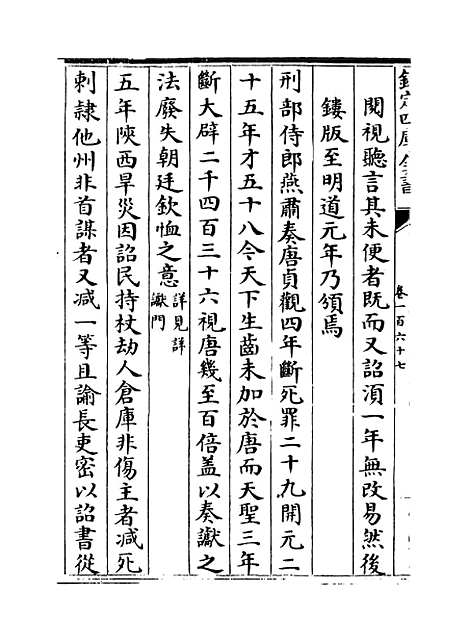 欽定四庫全書
卷一百六十七
閱視聽言其未便者既而又詔須一年無改易然後
鏤版至明道元年乃頒焉
刑部侍郎燕肅奏唐貞觀四年斷死罪二十九開元二
十五年才五十八今天下生齒未加於唐而天聖三年
斷大辟二千四百三十六視唐幾至百倍蓋以奏讞之
法廢失朝廷欽恤之意詳見詳
讞門
五年陜西旱災因詔民持杖劫人倉庫非傷主者減死
刺隷他州非首謀者又减一等且諭長吏密以詔書從